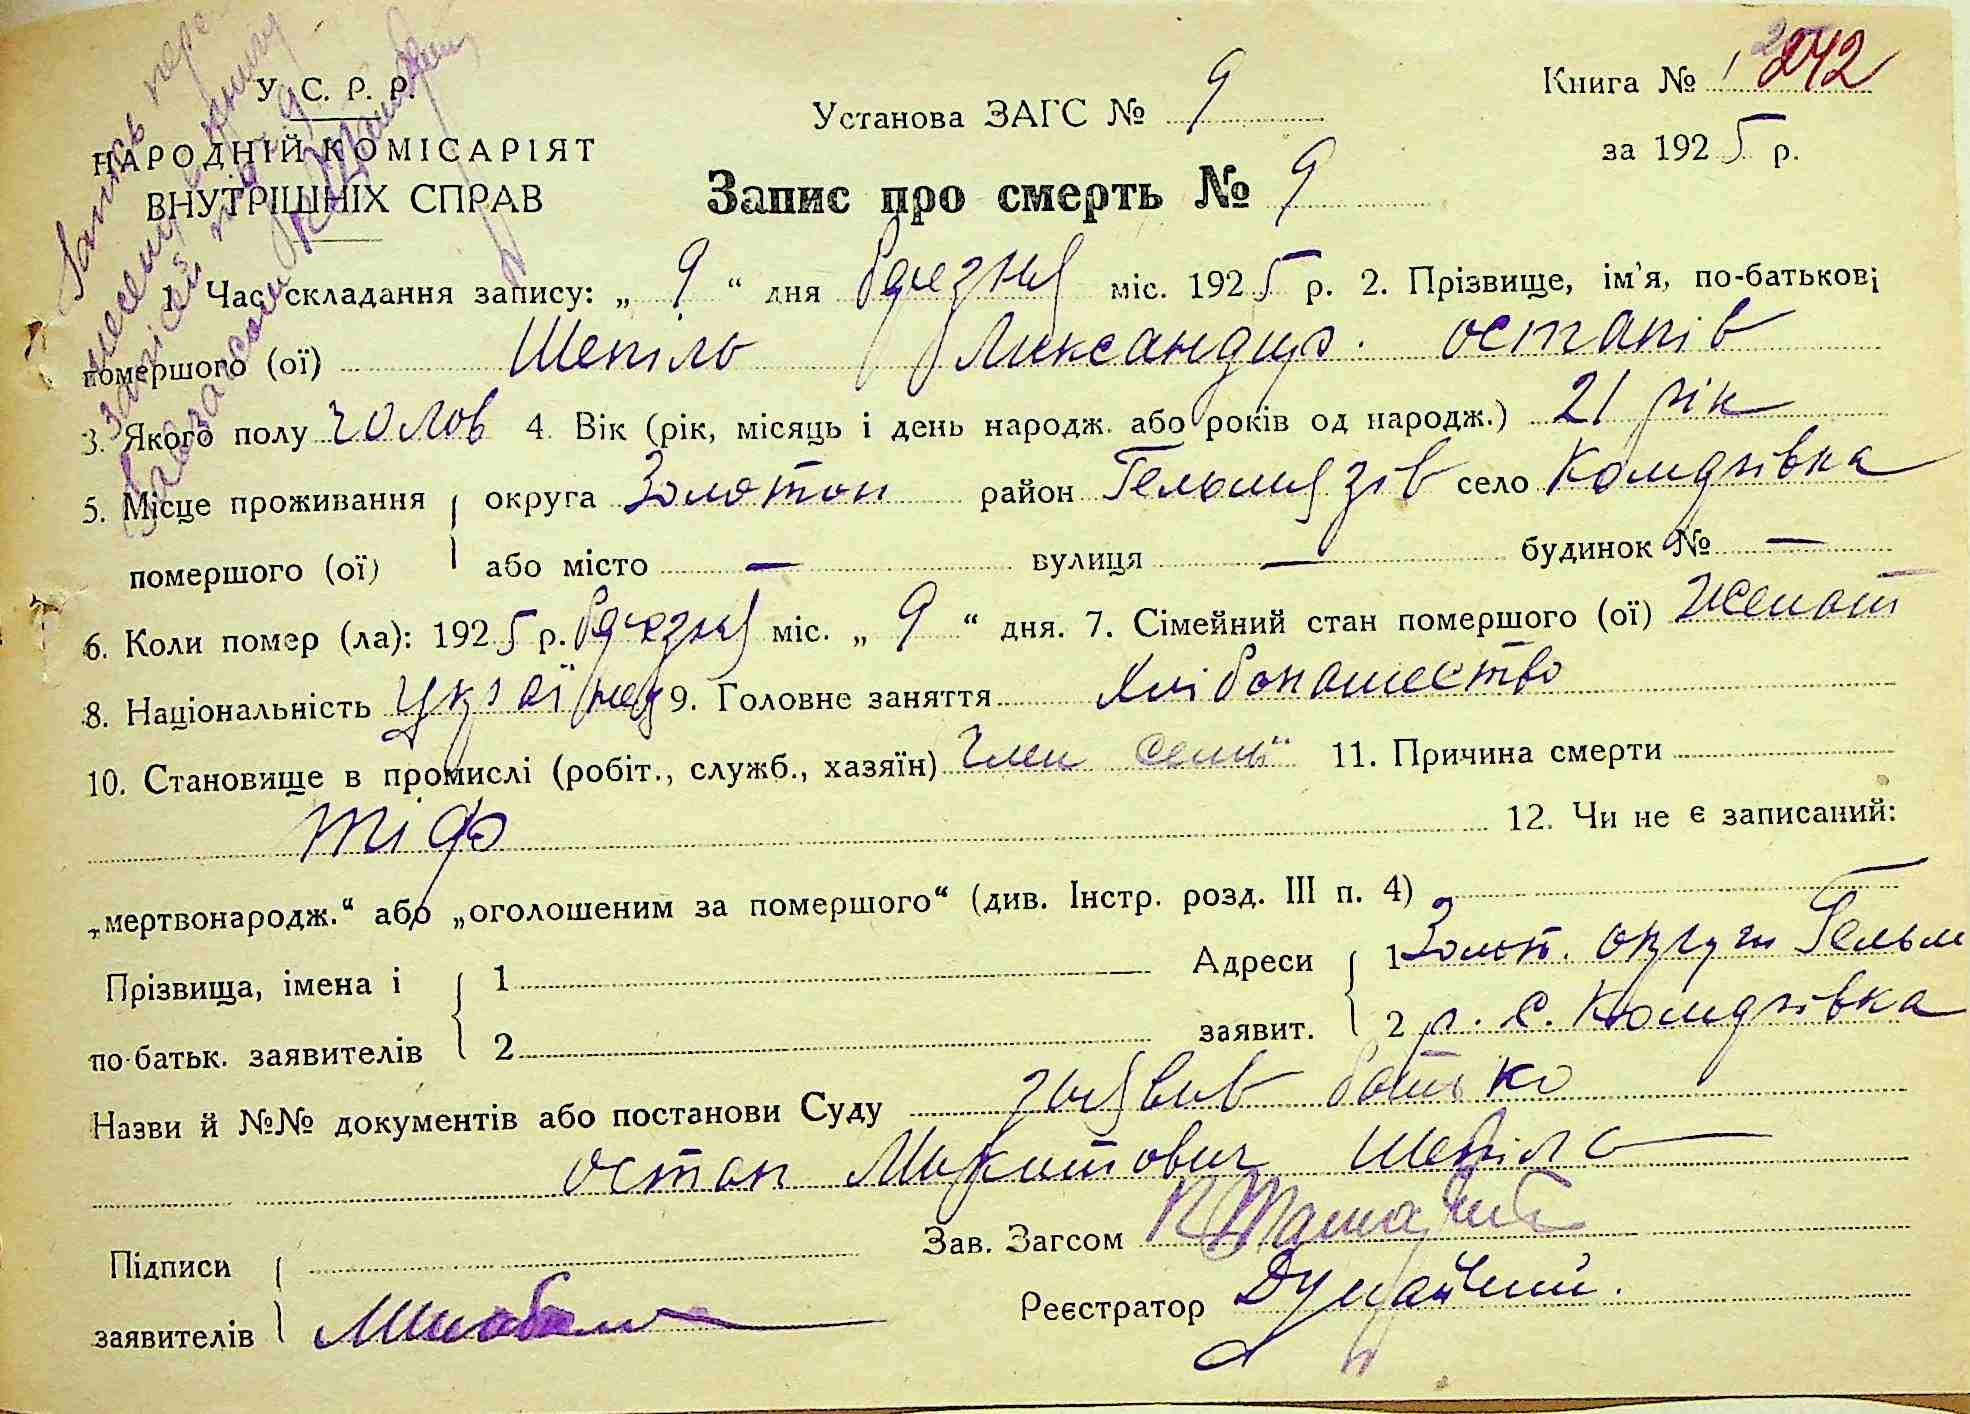 У. С. Р. Р.
НАРОДНІЙ КОМІСАРІЯТ
ВНУТРІШНІХ СПРАВ
Установа ЗАГС № 9
Книга № 242
за 1925 р.
Запис про смерть № 9
Запись пере
несену в книгу
1. Час складання запису: „ 9 “ дня березня міс. 1925 р. 2. Прізвище, ім'я, по-батькові
помершого (ої) Шепіль Александр. остапів
3. Якого полу чолов 4. Вік (рік, місяць і день народж. або років од народж.) 21 рік
5. Місце проживання округа Золотон район Гельмязів село Комарівка
помершого (ої) або місто — вулиця — будинок № —
6. Коли помер (ла): 1925 р. березня міс. „ 9 “ дня. 7. Сімейний стан помершого (ої) Женат
8. Національність 9. Головне заняття Хлібопашество
10. Становище в промислі (робіт., служб., хазяїн) Член семьї 11. Причина смерти
тіф 12. Чи не є записаний:
„мертвонародж.“ або „оголошеним за помершого“ (див. Інстр. розд. III п. 4)
Прізвища, імена і 1 Адреси 1 Золот. округи Гельм
по-батьк. заявителів 2 заявит. 2 р. с. Комарівка
Назви й №№ документів або постанови Суду заявив батько
остап Микитович Шепіль
Підписи Зав. Загсом
заявителів Реєстратор